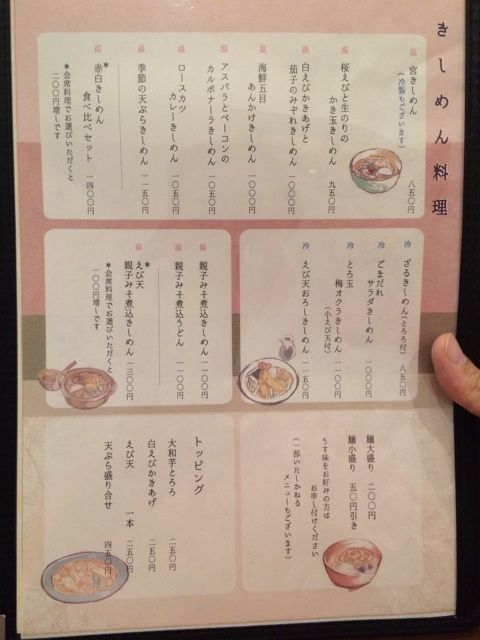 きしめん料理
温 宮きしめん 八五〇円
（冷製もございます）
温 桜えびと生のりの
かき玉きしめん 九五〇円
温 白えびかきあげと
茄子のみぞれきしめん 一〇〇〇円
温 海鮮五目
あんかけきしめん 一〇〇〇円
温 アスパラとベーコンの
カルボナーラきしめん 一〇五〇円
温 ロースカツ
カレーきしめん 一〇五〇円
温 季節の天ぷらきしめん 一一五〇円
温 *赤白きしめん
食べ比べセット 一四〇〇円
＊会席料理でお選びいただくと
二〇〇円増しです
冷 ざるきしめん（とろろ付） 八五〇円
冷 ごまだれ
サラダきしめん 一〇〇〇円
冷 とろ玉
梅オクラきしめん 一一〇〇円
（小えび天付）
冷 えび天おろしきしめん 一一五〇円
温 親子みそ煮込きしめん 一一〇〇円
温 親子みそ煮込うどん 一一〇〇円
温 *えび天
親子みそ煮込きしめん 一三〇〇円
＊会席料理でお選びいただくと
一〇〇円増しです
麺大盛り 二〇〇円
麺小盛り 五〇円引き
うす味をお好みの方は
お申し付けください
（一部いたしかねる
メニューもございます）
トッピング
大和芋とろろ 二五〇円
白えびかきあげ 二五〇円
えび天 一本 二五〇円
天ぷら盛り合せ 四五〇円